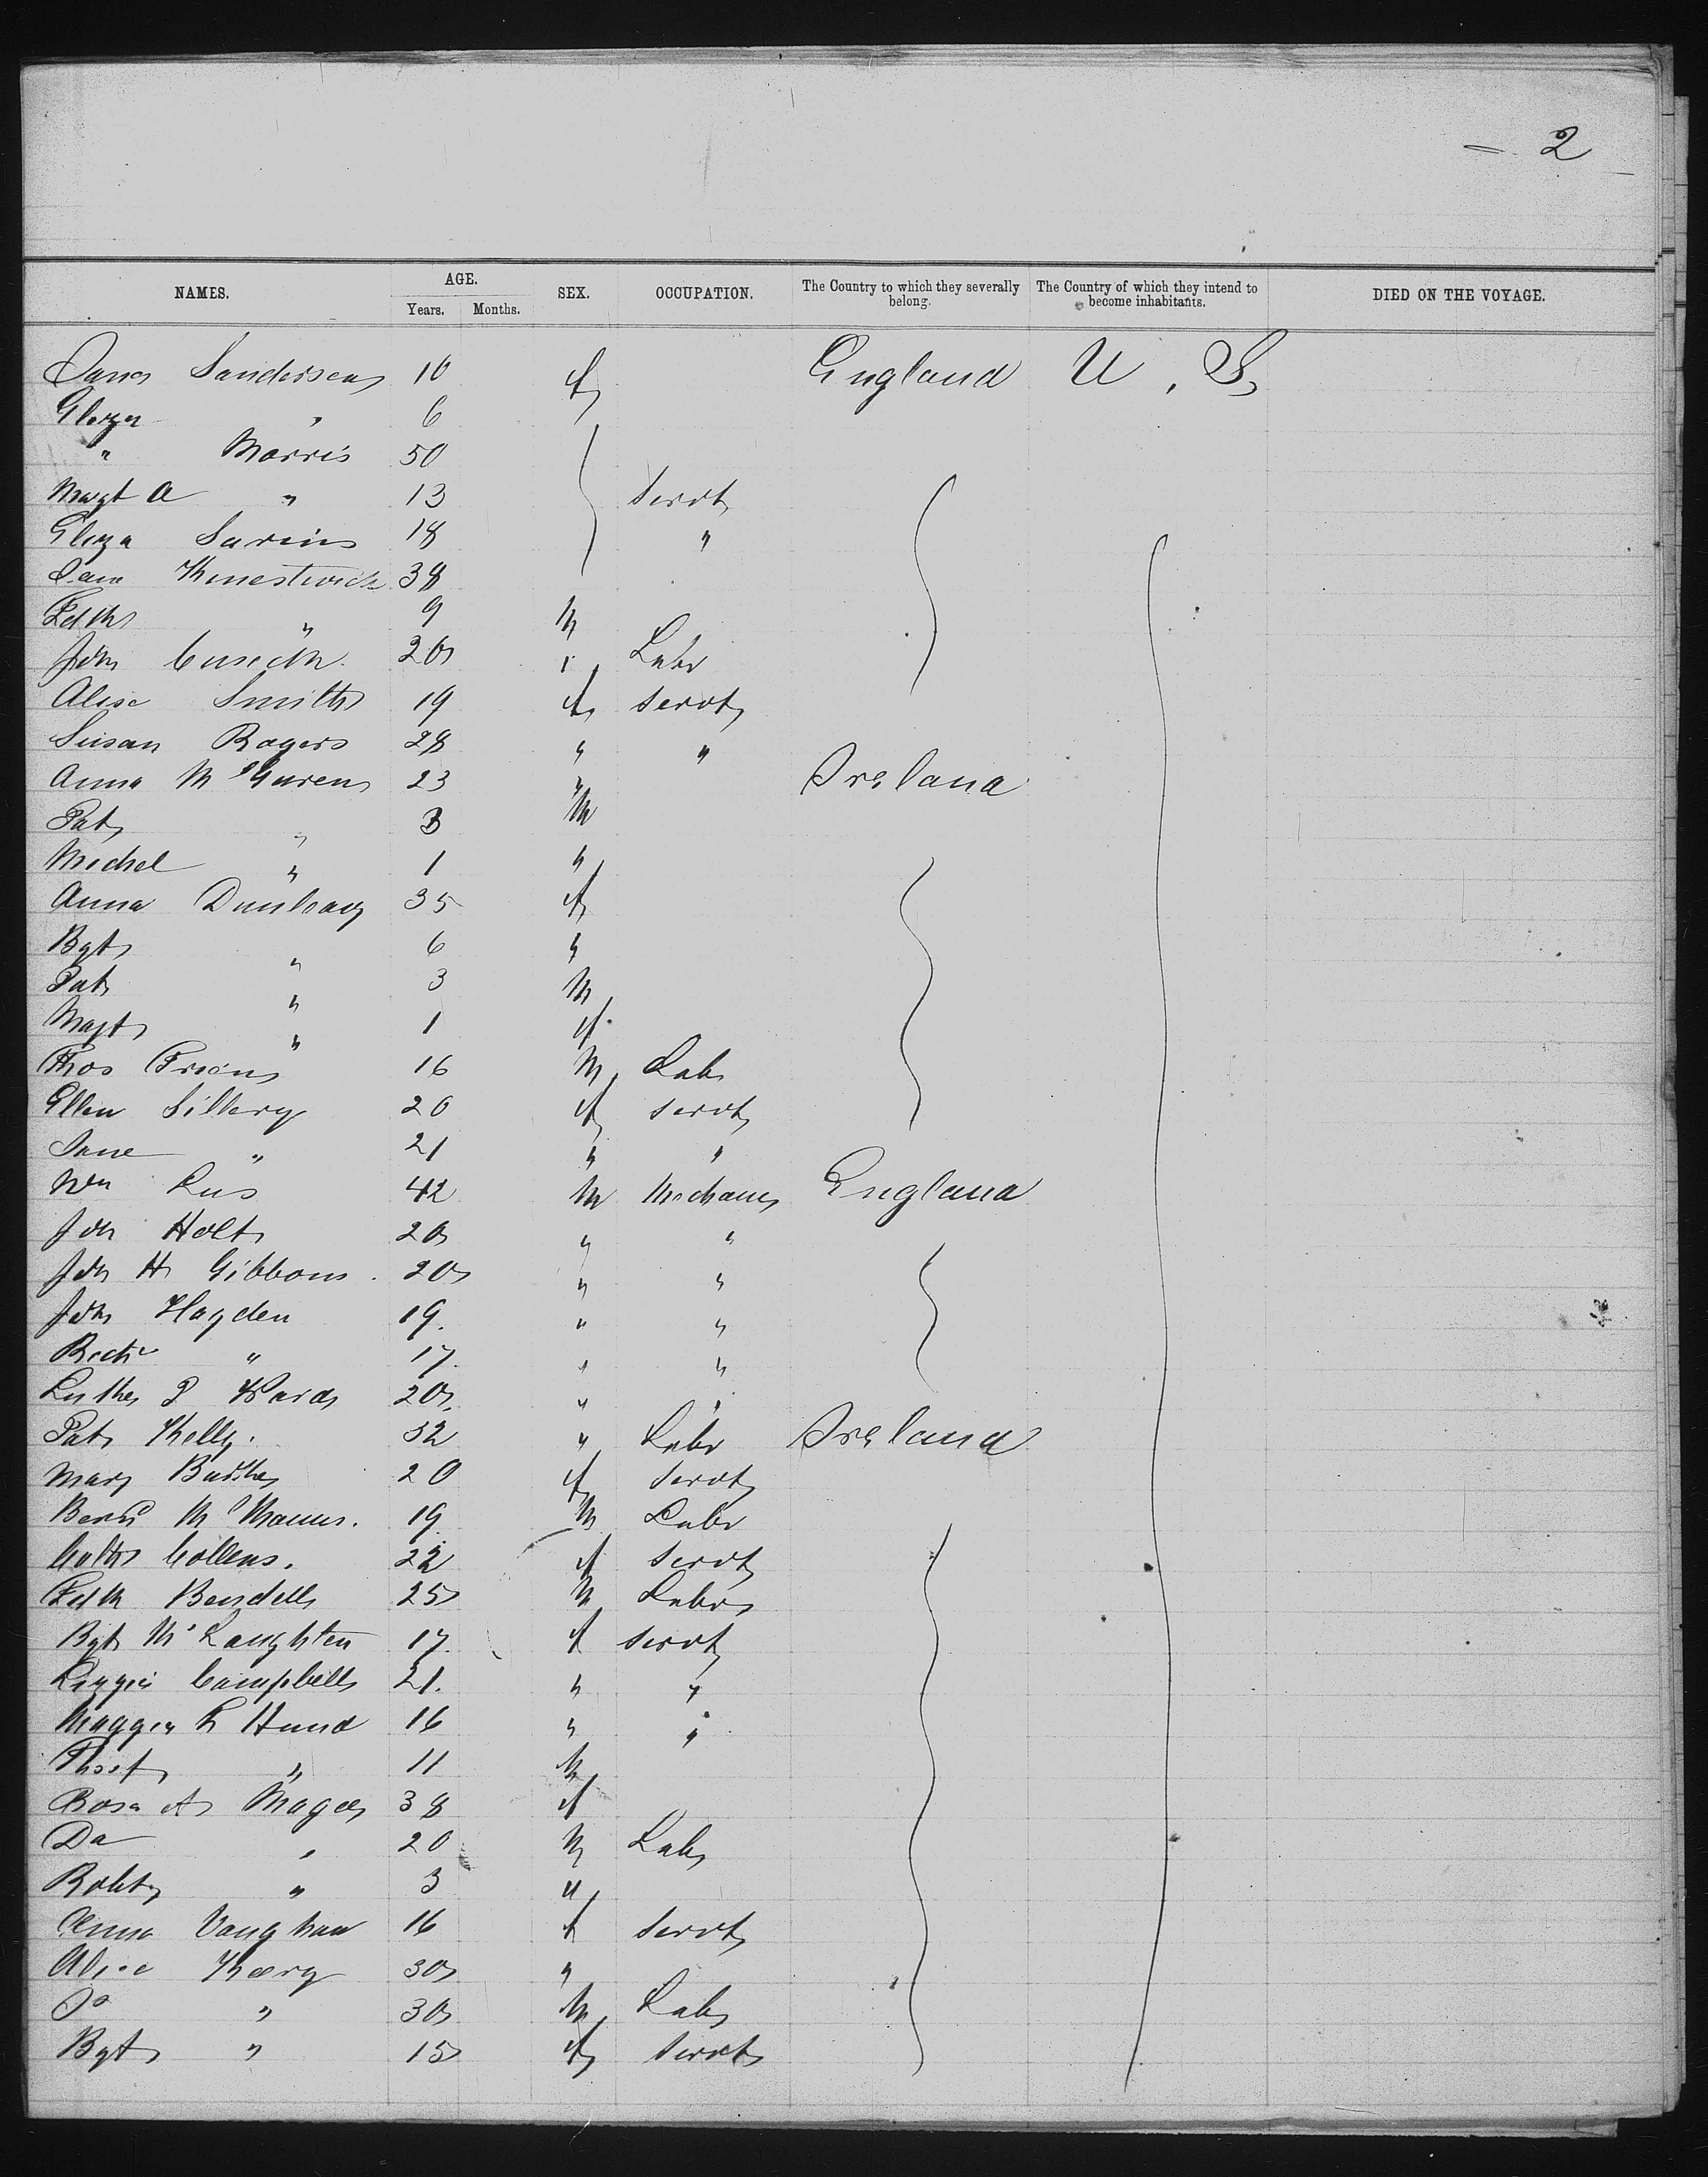 2
NAMES. AGE. Years. Months. SEX. OCCUPATION. The Country to which they severally belong. The Country of which they intend to become inhabitants. DIED ON THE VOYAGE.
Sanderson 10 f England U. S.
Eliza " 6
" Morris 50
Magt A " 13 Servt
Eliza 18 "
Jane 38
" 9 M
Jdn 20 " Labr
Alise Smith 19 f Servt
Susan Rogers 28 " "
Anna 23 " Ireland
Pat " 3 M
Michel " 1 "
Anna 35 f
Bgt " 6 "
Pat " 3 M
Magt " 1 f
Thos 16 M Lab
Ellen Sillery 20 f Servt
Jane " 21 " "
Wm 42 M Mechanic England
Jdn Holt 20 " "
Jdn H Gibbons 20 " "
Jdn Hayden 19 " "
" 17 " "
Luther P Ward 20 " "
Pat Kelly 32 " Labr Ireland
Mary 20 f Servt
Bernd McManus 19 M Labr
Collens 22 f Servt
Bendell 25 M Labr
Bgt McLaughten 17 f Servt
Lizzie Campbell 21 " "
Maggie 16 " "
" 11 M
Rosa A Magee 38 f
" 20 M Lab
Robt " 3 "
Anna Vaughan 16 f Servt
Alice 30 "
" 30 M Lab
Bgt " 15 f Servt